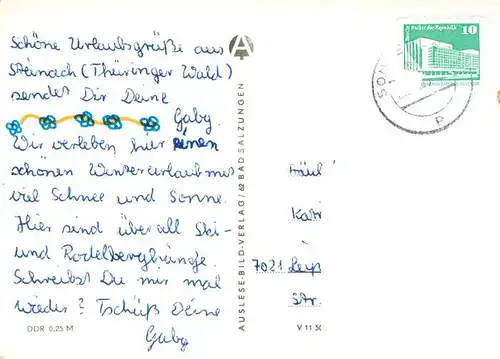 Schöne Urlaubsgrüße aus
Steinach (Thüringer Wald)
sendet Dir Deine
Gaby.
Wir verleben hier einen
schönen Winterurlaub mit
viel Schnee und Sonne.
Hier sind überall Ski-
und Rodelberghänge.
Schreibst Du mir mal
wieder? Tschüß Deine
Gaby
DDR 0,25 M
AUSLESE-BILD-VERLAG / 62 BAD SALZUNGEN
A
Palast der Republik
10
P
Fräul
Katr
7021 Leip
Str.
V 11 50